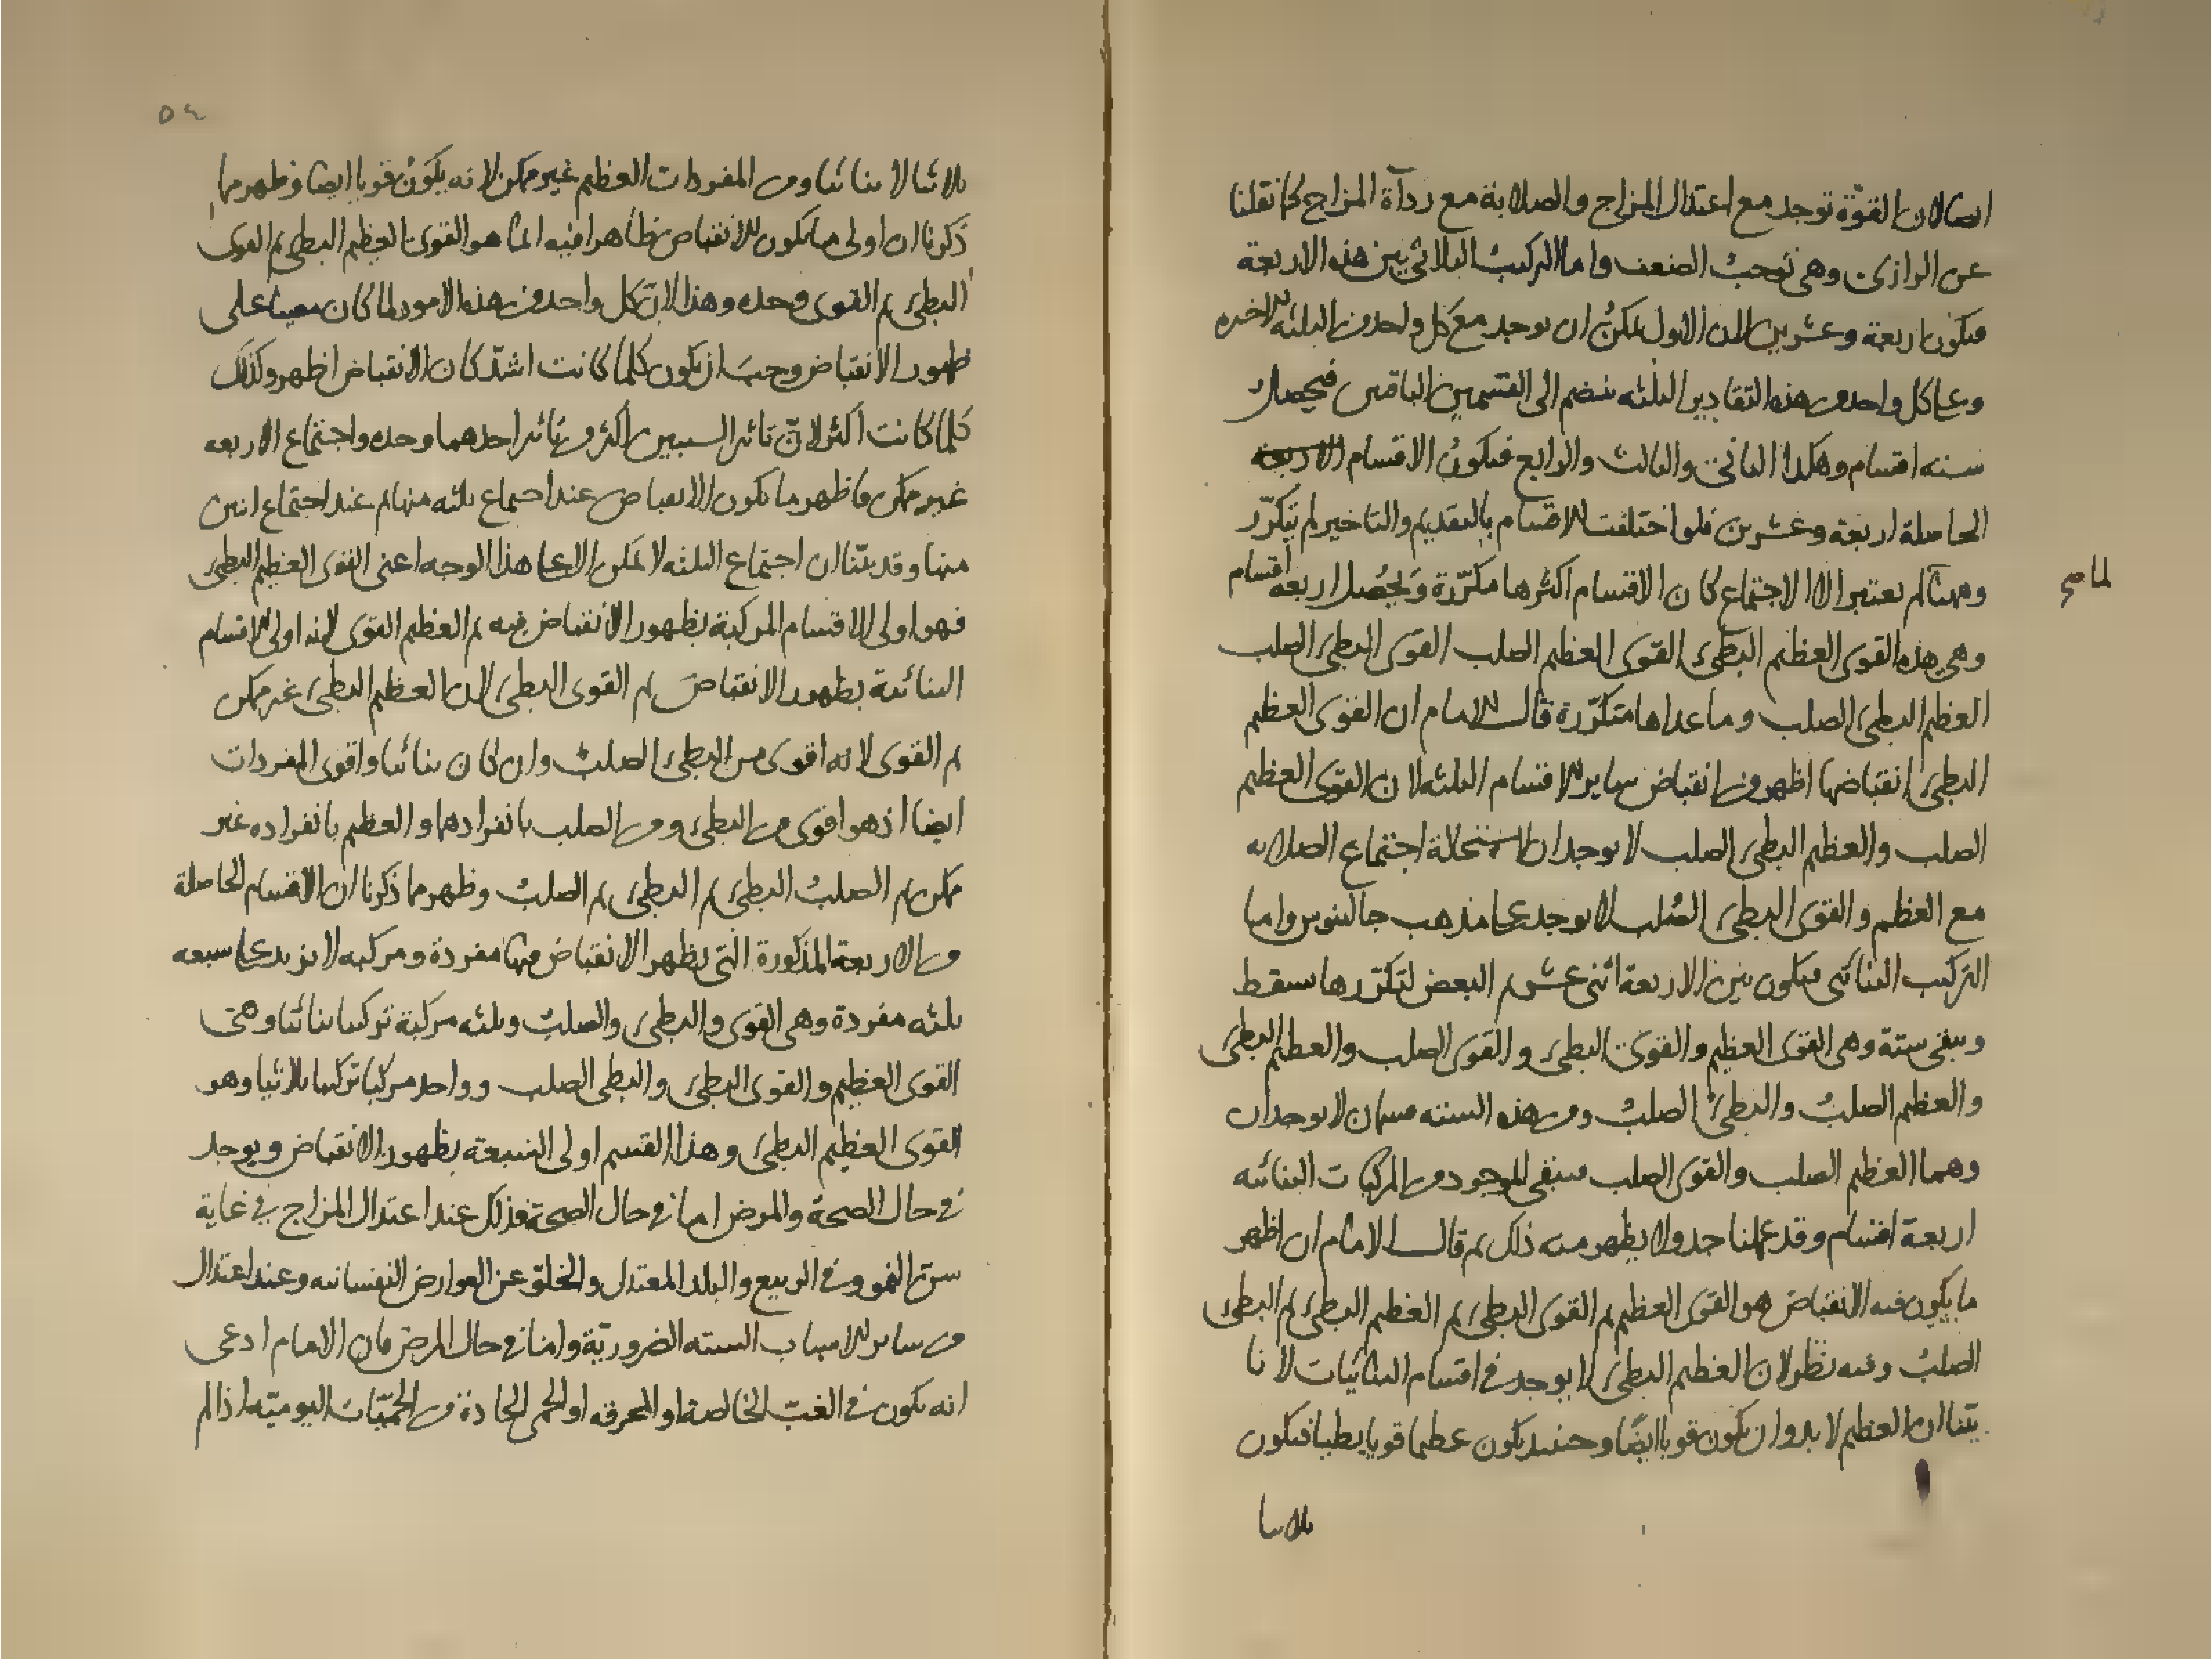 ايضا لان القوّة توجد مع اعتدال المزاج والصلابة مع ردآة المزاج كما نقلنا
عن الرازى وهى توجب الضعف واما التركيب الثلاثى بين هذه الاربعة
فيكون اربعة وعشرين لان الاول يمكن ان يوجد مع كل واحد من الثلثه الاخره
وعلى كل واحد من هذه التقادير الثلثه ينضم الى القسمين الباقيين فيحصل
سته اقسام وهكذا الثانى والثالث والرابع فيكون الاقسام الاربعة
الحاصلة اربعة وعشرين فلو اختلفت الاقسام بالتقديم والتاخير لم يتكرّر
وههنا لم يعتبر الا الاجتماع كان الاقسام اكثرها مكرّرة ويحصل اربعه اقسام
لما صح
وهى هذه القوى العظيم البطئ القوى العظيم الصلب القوى البطئ الصلب
العظيم البطئ الصلب وما عداها متكرّرة قال الامام ان القوى العظيم
البطئ انقباضها اظهر من انقباض ساير الاقسام الثلثه لان القوى العظيم
الصلب والعظيم البطئ الصلب لا يوجدان لاستحالة اجتماع الصلابه
مع العظم والقوى البطئ الصُلب لا يوجد على مذهب جالينوس واما
التركيب الثنائى فيكون بين الاربعة اثنى عشر ثم البعض لتكرّرها يسقط
ويبقى ستة وهى القوى العظيم والقوى البطئ والقوى الصلب والعظيم البطئ
والعظيم الصلب والبطئ الصلب ومن هذه السته قسمان لا يوجدان
وهما العظيم الصلب والقوى الصلب فيبقى الموجود من المركبات الثنائيه
اربعة اقسام وقد عملنا جدولا يظهر منه ذلك ثم قال الامام ان اظهر
ما يكون فيه الانقباض هو القوى العظيم ثم القوى البطئ ثم العظيم البطئ ثم البطئ
الصلب وفيه نظر لان العظيم البطئ لا يوجد فى اقسام الثنائيات لانا
بيّنا ان العظيم لا بد وان يكون قويا ايضًا وحينئذ يكون عظيما قويا بطيئا فيكون
ثلاثيا
٥٤
ثلاثيا لا ثنائيا ومن المفردات العظيم غير ممكن لانه يكون قويا ايضا وظهر مما
ذكرنا ان اولى ما يكون الانقباض ظاهرا فيه انما هو القوى العظيم البطئ ثم القوى
البطئ ثم القوى وحده وهذا لان كل واحد من هذه الامور لما كان معينا على
ظهور الانقباض وجب ان يكون كلما كانت اشدّ كان الانقباض اظهر وكذلك
كلما كانت اكثر لانّ تاثير السببين اكثر من تاثير احدهما وحده واجتماع الاربعه
غير ممكن فاظهر ما يكون الانقباض عند اجتماع ثلثه منها ثم عند اجتماع اثنين
منها وقد بيّنا ان اجتماع الثلثه لا يمكن الا على هذا الوجه اعنى القوى العظيم البطئ
فهو اولى الاقسام المركبة بظهور الانقباض فيه ثم العظيم القوى لانه اولى الاقسام
الثنائية بظهور الانقباض ثم القوى البطئ لان العظيم البطئ غير ممكن
ثم القوى لانه اقوى من البطئ الصلب وان كان ثنائيا واقوى المفردات
ايضا اذ هو اقوى من البطئ ومن الصلب بانفرادهما والعظيم بانفراده غير
ممكن ثم الصلب البطئ ثم البطئ ثم الصلب وظهر مما ذكرنا ان الاقسام الحاصلة
من الاربعة المذكورة التى يظهر الانقباض فيها مفردة ومركبه لا يزيد على سبعه
ثلثه مفردة وهى القوى والبطئ والصلب وثلثه مركبة تركيبا ثنائيا وهى
القوى العظيم والقوى البطئ والبطئ الصلب وواحد مركبا تركيبا ثلاثيا وهو
القوى العظيم البطئ وهذا القسم اولى السبعة بظهور الانقباض ويوجد
فى حال الصحة والمرض اما فى حال الصحة فذلك عند اعتدال المزاج فى غاية
سن النمو وفى الربيع والبلد المعتدل والخلوّ عن العوارض النفسانيه وعند اعتدال
من ساير الاسباب السته الضروريّة واما فى حال المرض فان الامام ادعى
انه يكون فى الغب الخالصة او المحرقه او الحمى الحادة من الحمّيات اليوميّه اذا لم